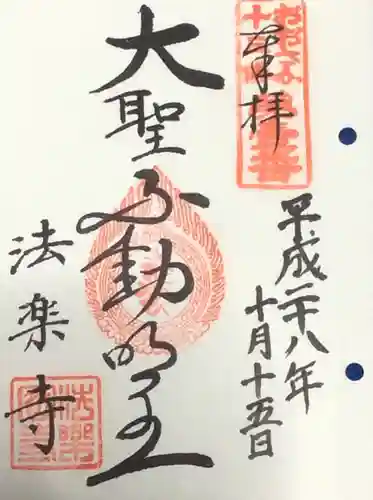 奉拝
平成二十八年
十月十五日
大聖不動明王
法楽寺